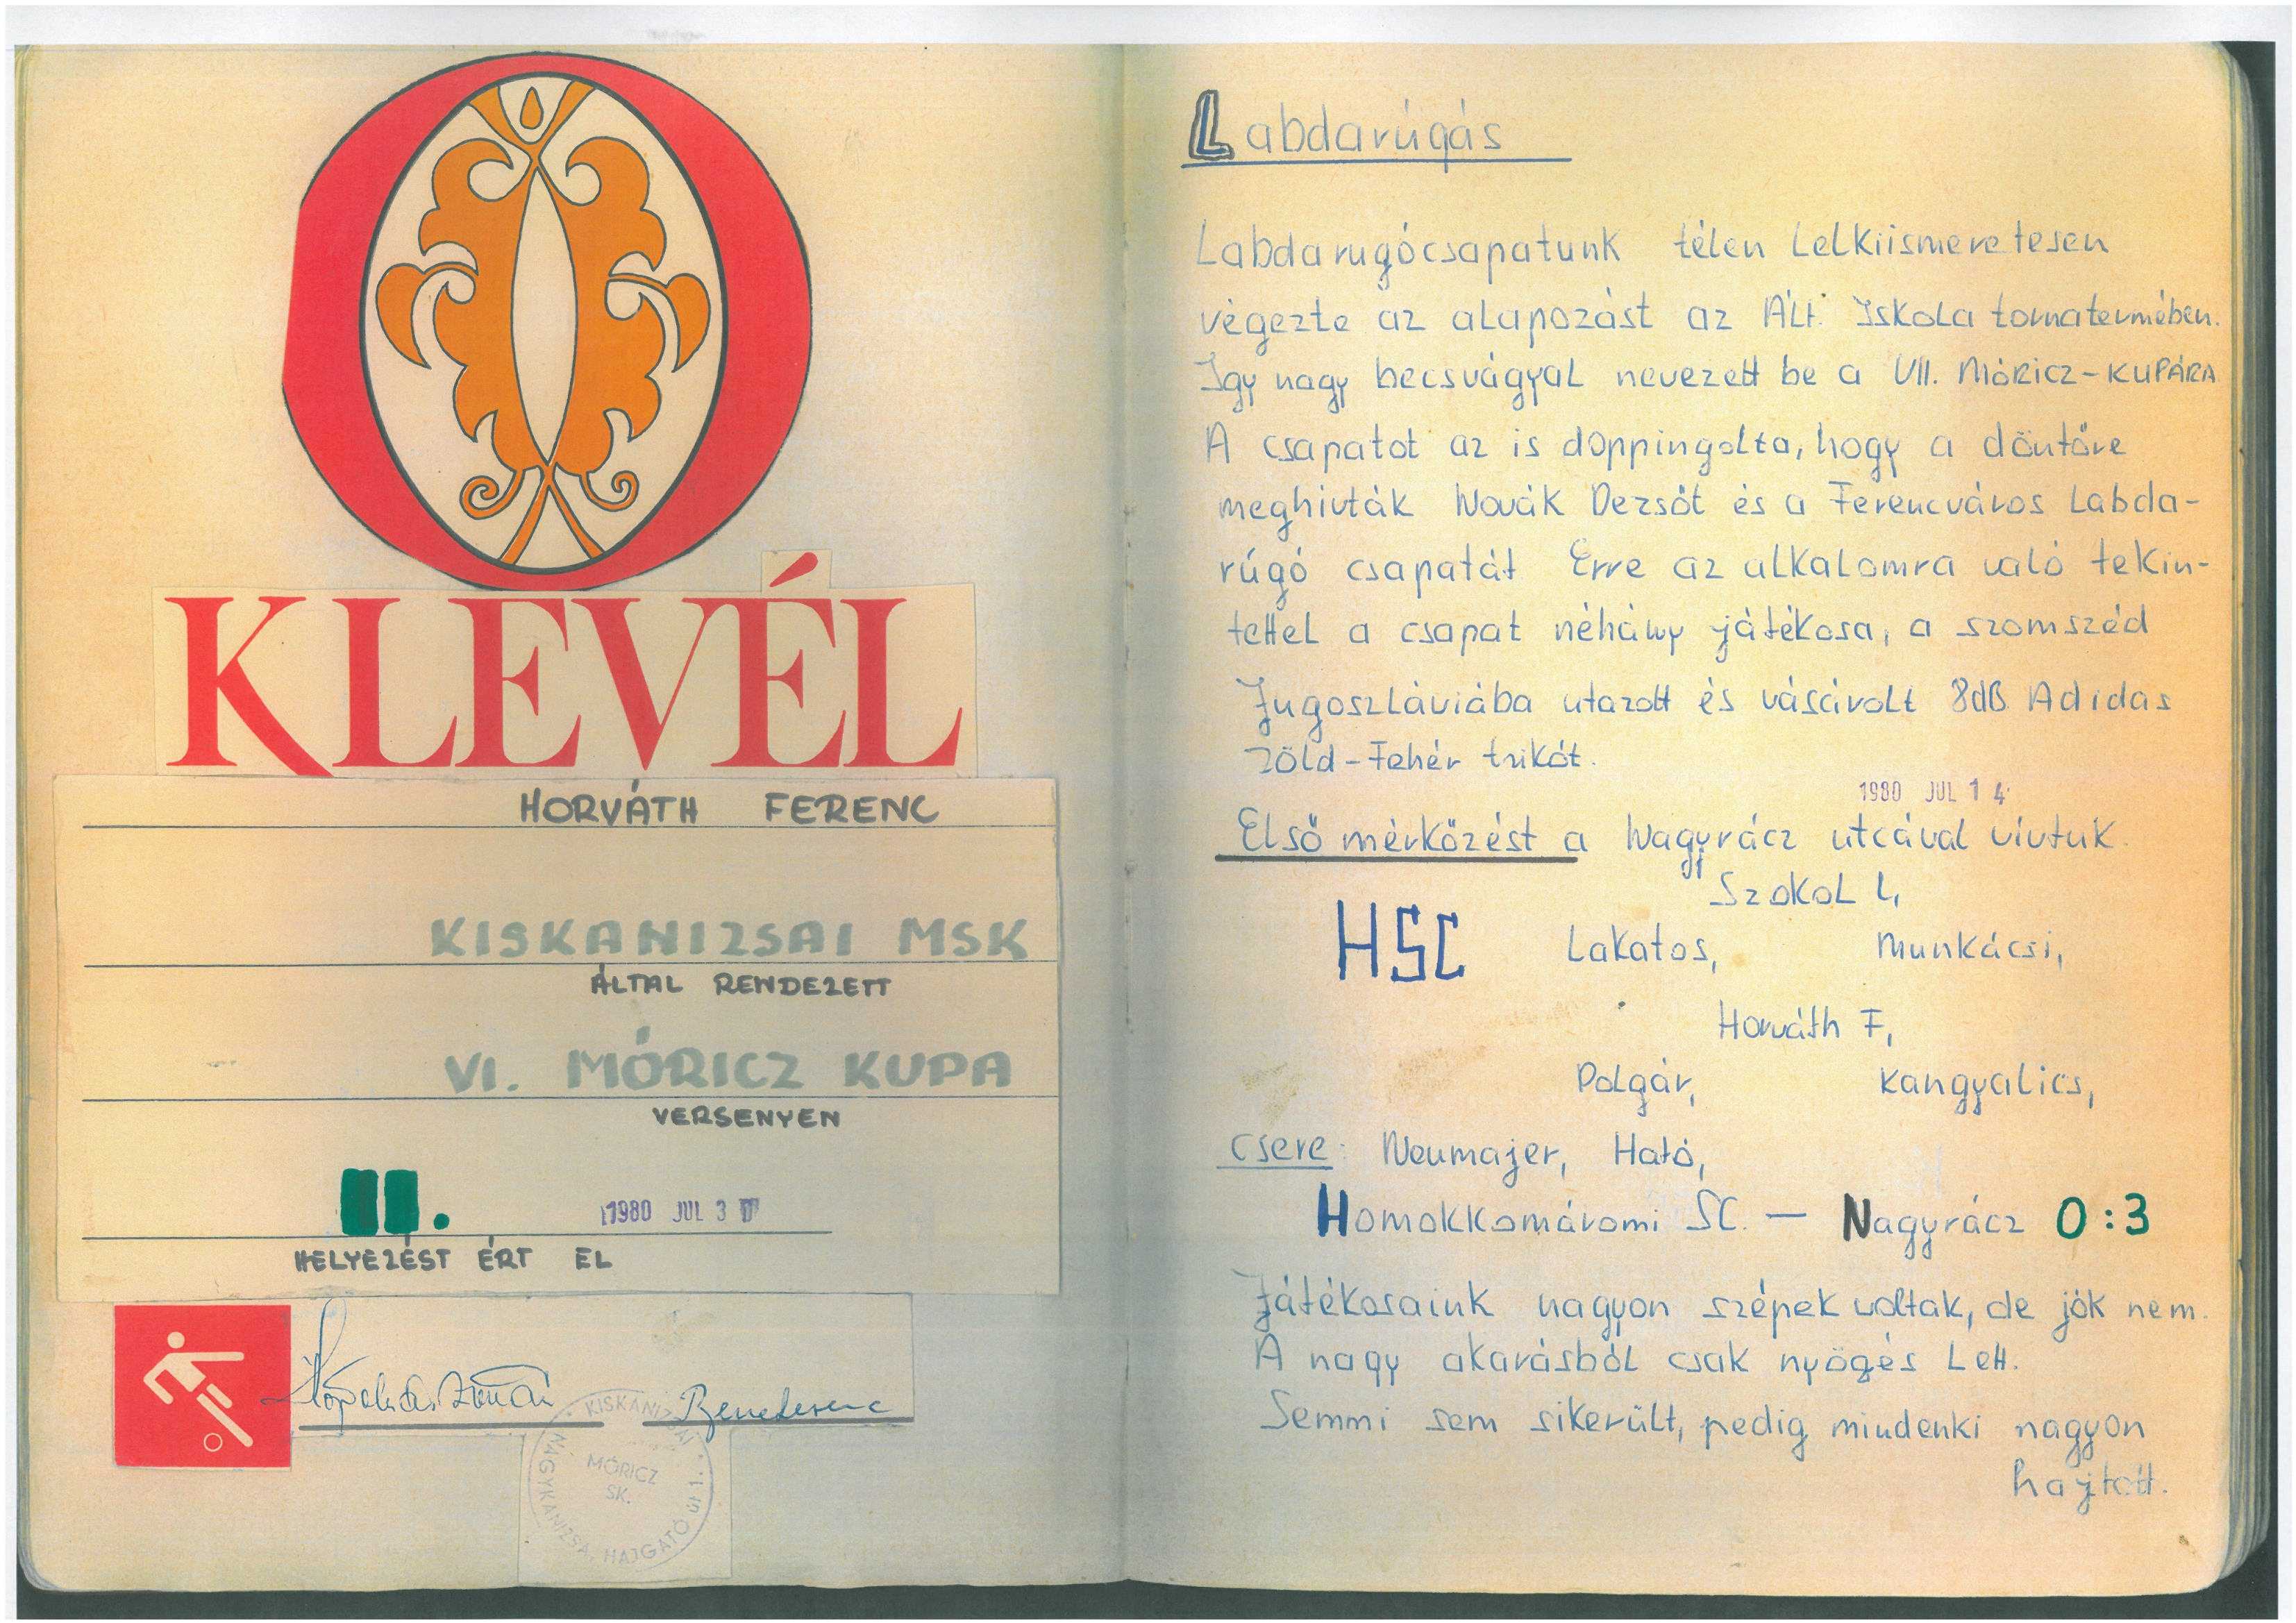 OKLEVÉL
HORVÁTH FERENC
KISKANIZSAI MSK
ÁLTAL RENDEZETT
VI. MÓRICZ KUPA
VERSENYEN
II. 1980 JUL 3
HELYEZÉST ÉRT EL
KISKANIZSAI
MÓRICZ
SK.
NAGYKANIZSA, HAJGATÓ ÚT 1.
Labdarúgás
Labdarugócsapatunk télen Lelkiismeretesen
végezte az alapozást az Ált. Iskola tornatermében.
Igy nagy becsvágyal nevezett be a VII. MÓRICZ-KUPÁRA
A csapatot az is doppingolta, hogy a döntőre
meghivták Novák Dezsőt és a Ferencváros Labda-
rúgó csapatát Erre az alkalomra való tekin-
tettel a csapat néhány játékosa, a szomszéd
Jugoszláviába utazott és vásárolt 8dB Adidas
zöld-Fehér trikót.
1980 JUL 1 4
Első mérkőzést a Nagyrácz utcával vívtuk
Szokol L,
HSC Lakatos, Munkácsi,
Horváth F,
Polgár, Kangyalics,
csere: Neumajer, Ható,
Homokkomáromi SC. — Nagyrácz 0:3
Játékosaink nagyon szépek voltak, de jók nem.
A nagy akarásból csak nyögés Lett.
Semmi sem sikerült, pedig mindenki nagyon
hajtott.